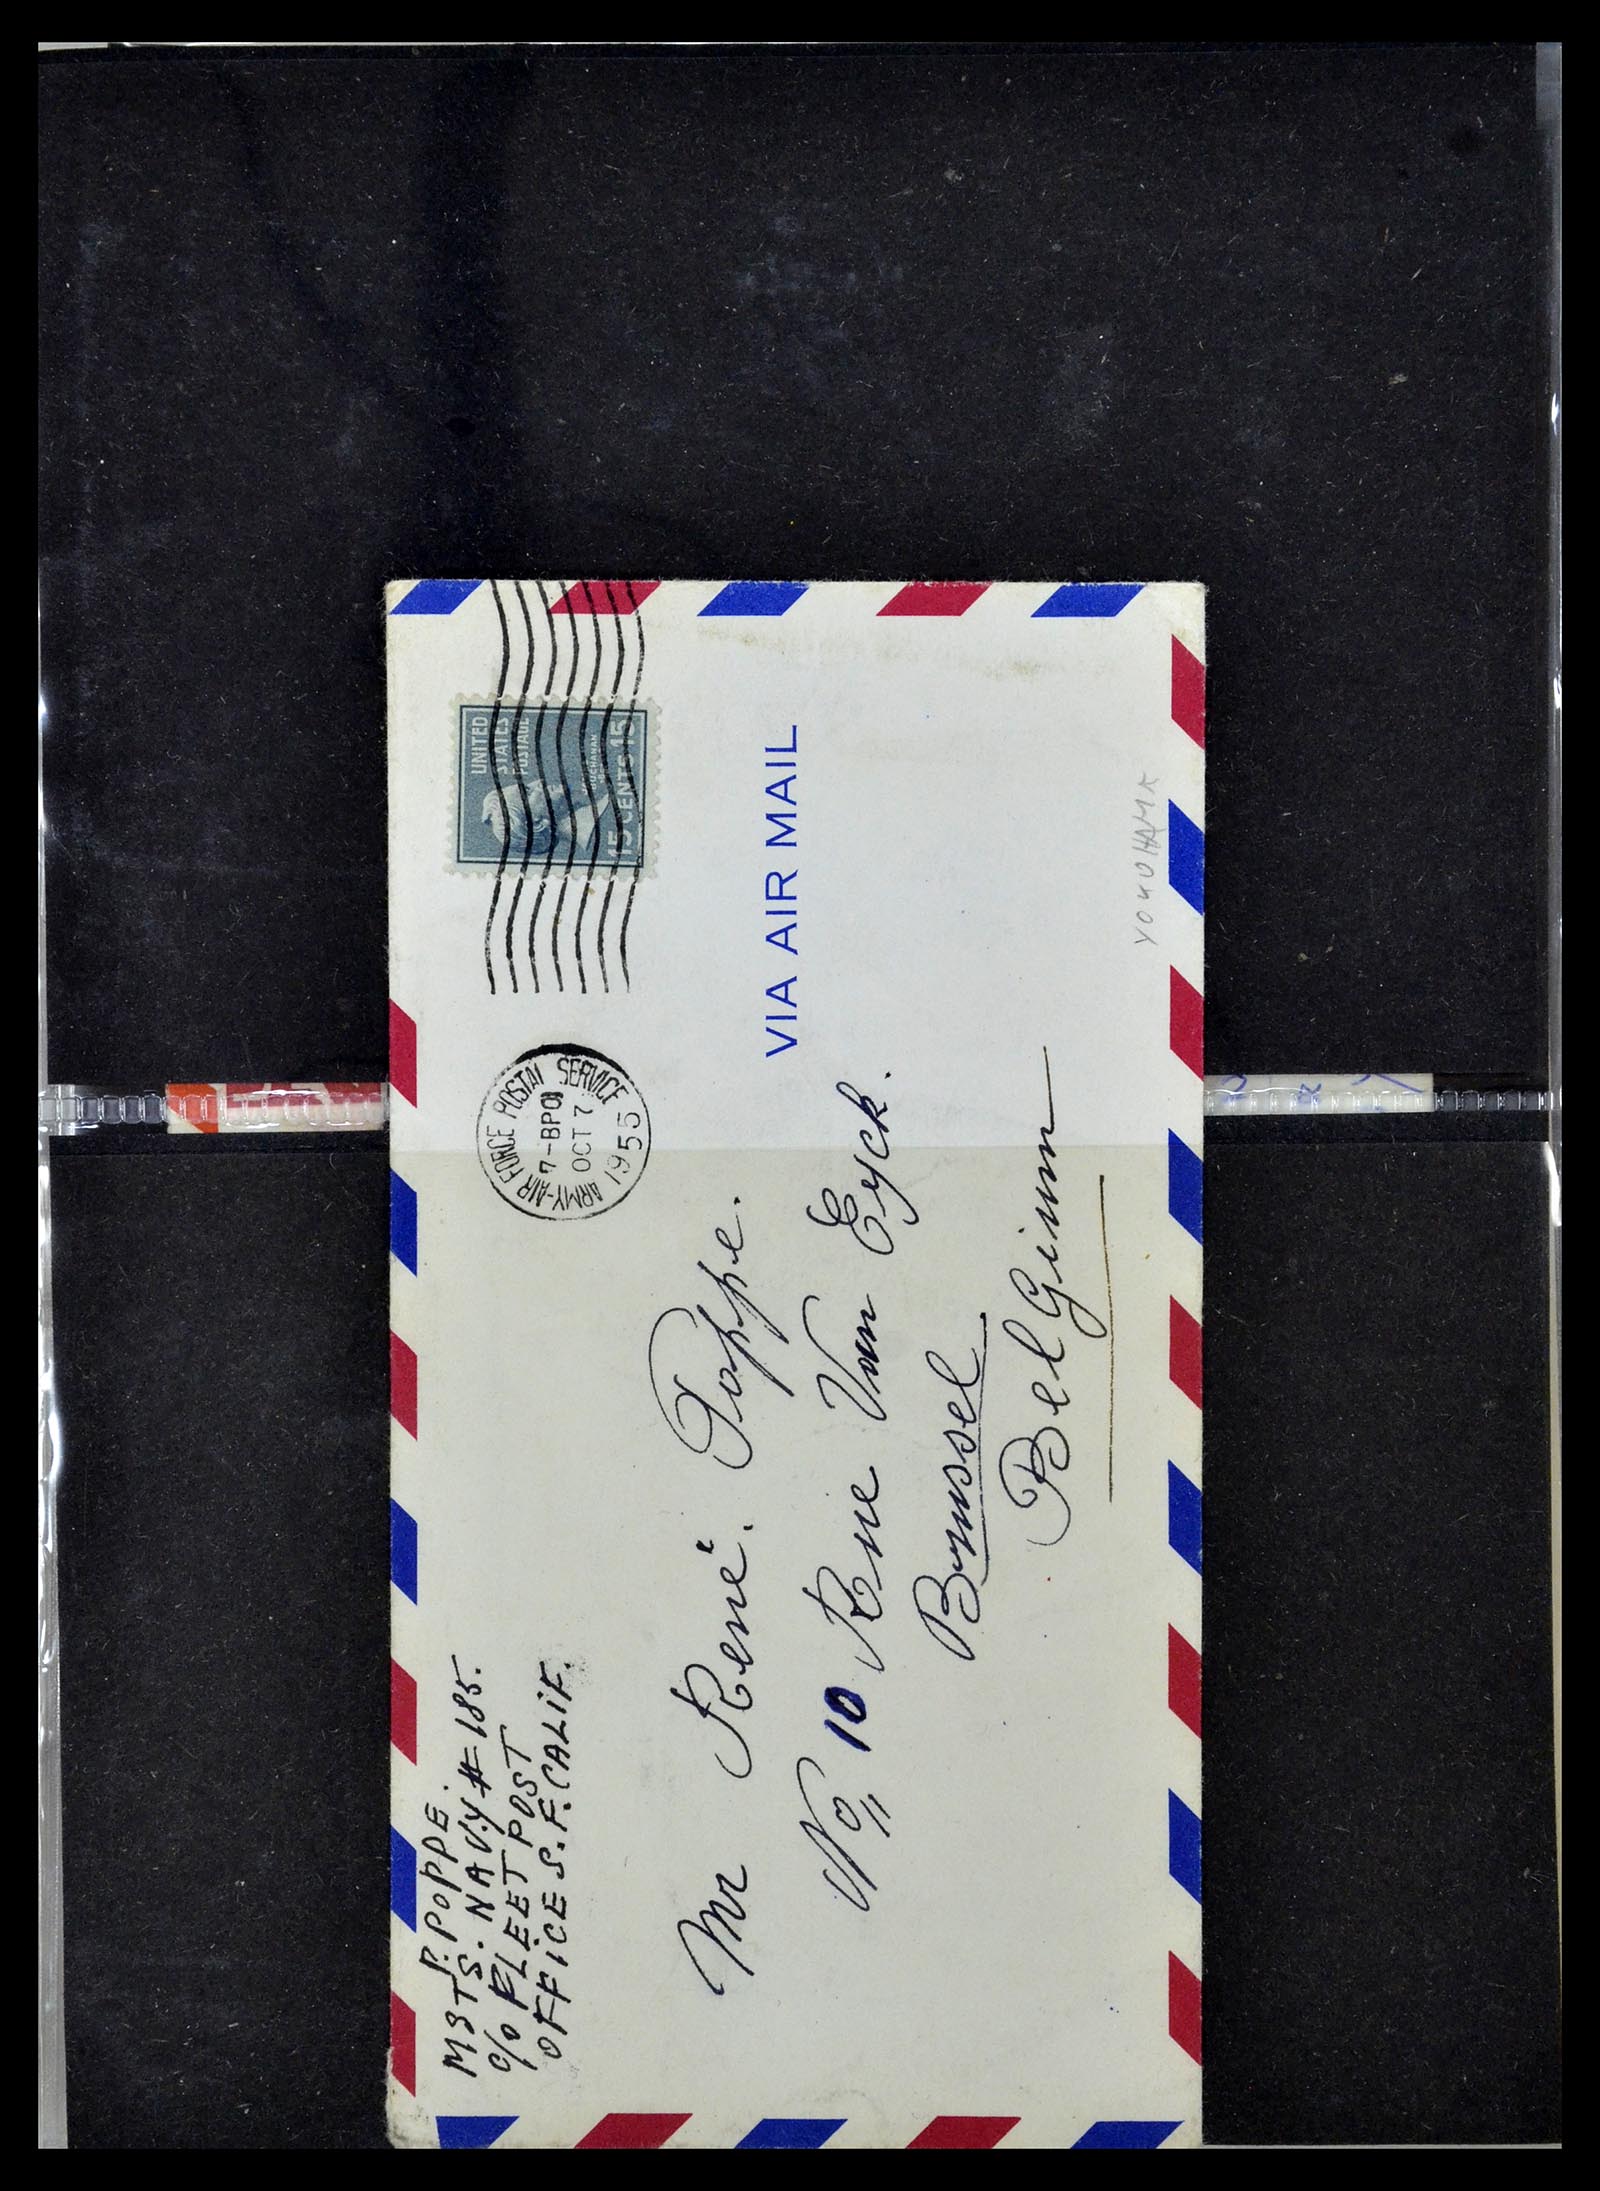 P. POPPE.
M3TS. NAVY # 185.
C/O FLEET POST
OFFICE S.F. CALIF.
ARMY-AIR FORCE POSTAL SERVICE
7-BPO
OCT 7
1955
UNITED
STATES
POSTAGE
BUCHANAN
15 CENTS 15
VIA AIR MAIL
Mr René. Poppe.
No 10 Rue Van Eyck.
Brussel
BelGium
YOKOHAMA